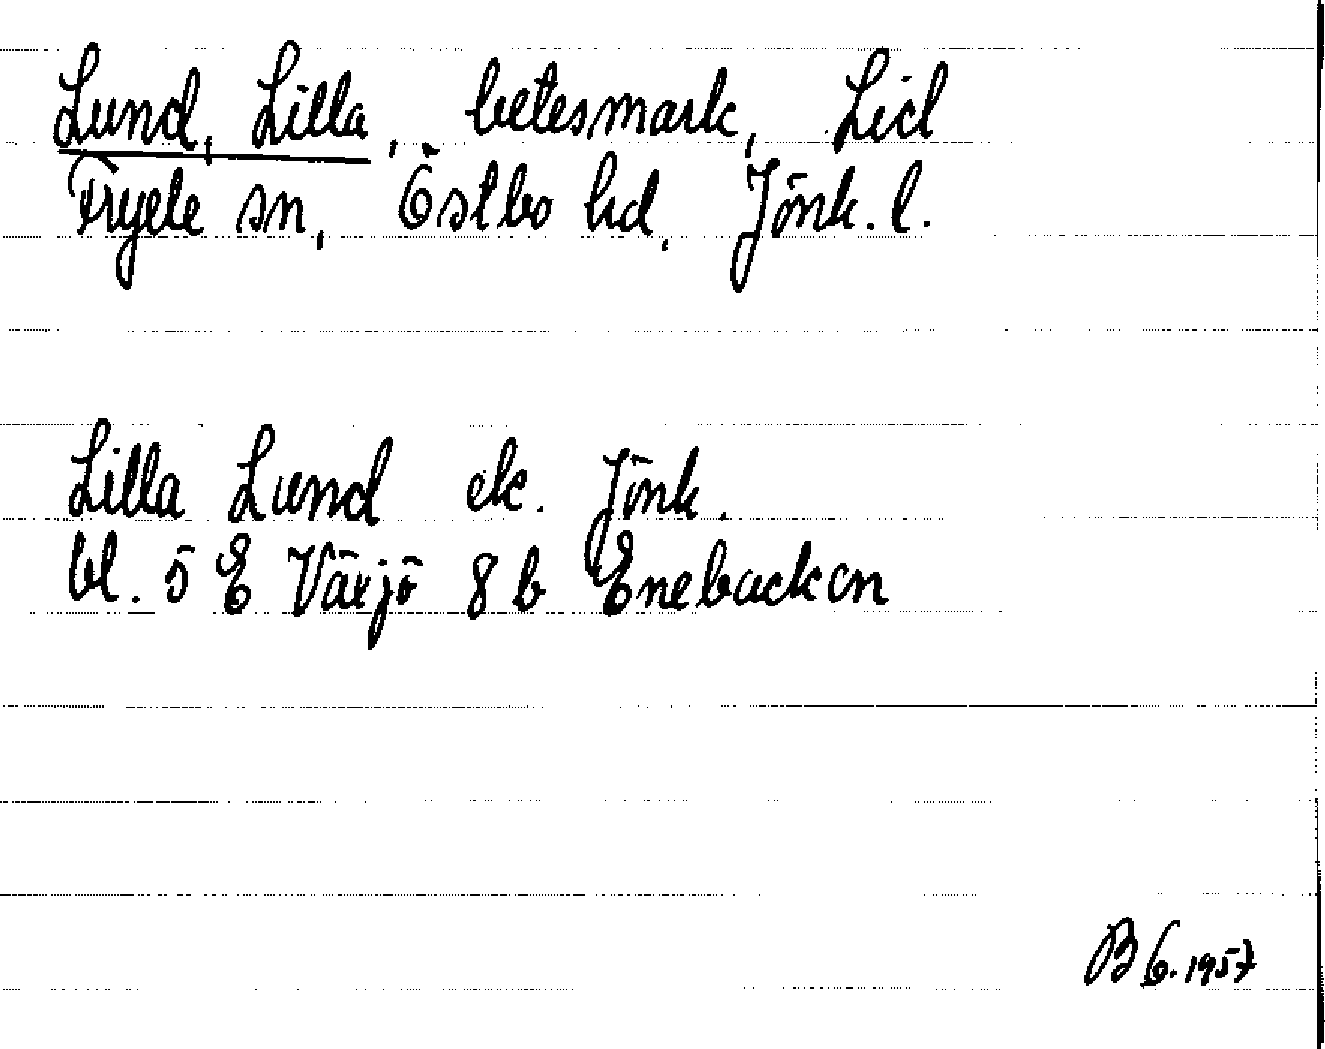 Lund, Lilla, betesmark, Lid
Fryele sn, Östbo hd, Jönk. l.
Lilla Lund ek. Jönk.
bl. 5 E Växjö 8 b Enebacken
B 6. 1957